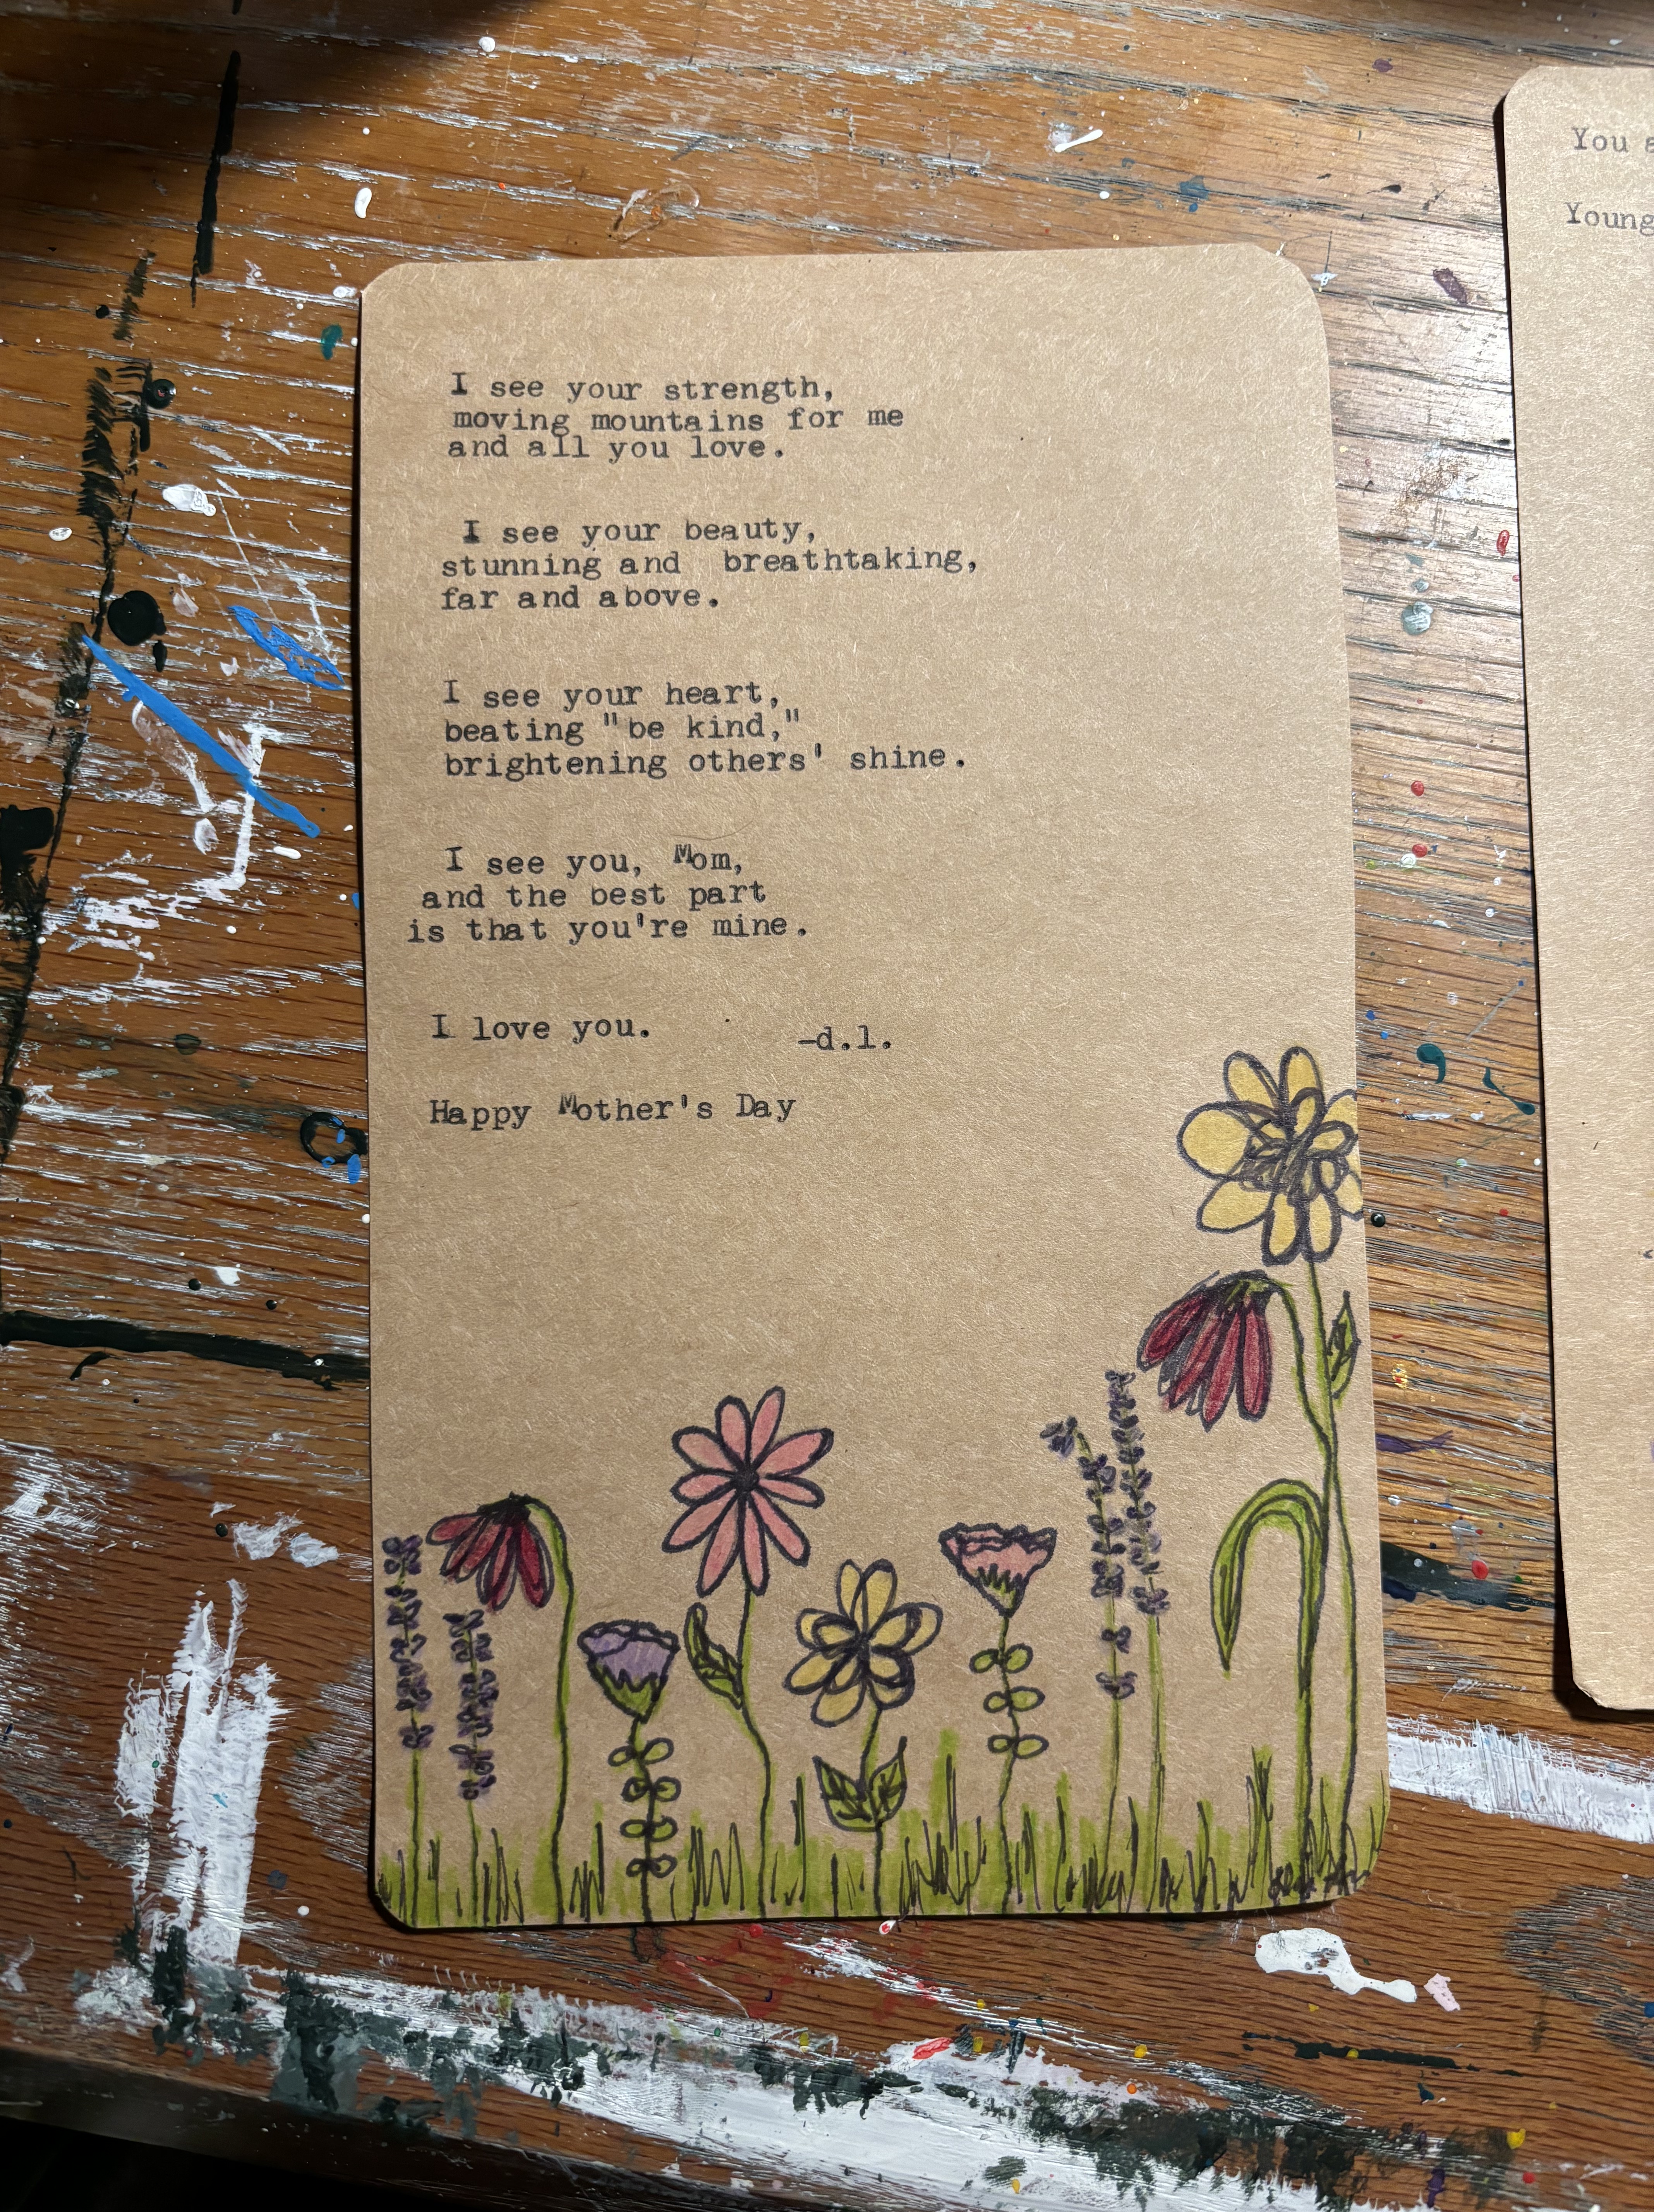 I see your strength,
moving mountains for me
and all you love.
I see your beauty,
stunning and breathtaking,
far and above.
I see your heart,
beating "be kind,"
brightening others' shine.
I see you, Mom,
and the best part
is that you're mine.
I love you.
-d.l.
Happy Mother's Day
You
Young